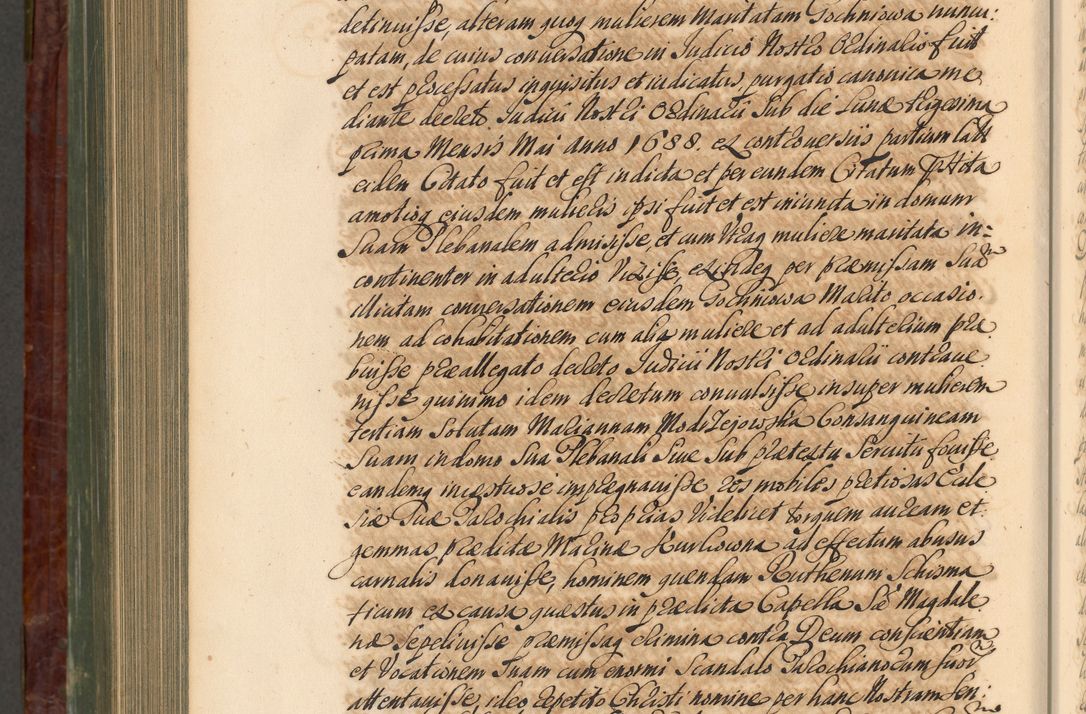 detinuisse, alteram quoq mulierem Maritatam Gochniowa nuncu:
patam, de cuius conversatione in Judicio Nostro Ordinario fuit
et est processatus inquisitus et iudicatus, purgatio canonica me
diante decreto Judicii Nostri Ordinarii sub die Lunæ trigesima
prima Mensis Mai Anno 1688. ex controversiis partium lato
eidem Citato fuit et est indicta et per eundem Citatum præstita
amotioq eiusdem mulieris ipsi fuit et est iniuncta in domum
Suam Plebanalem admisisse, et cum utraq muliere maritata in=
continenter in adulterio vixisse, exindeq per præmissam Suam
illicitam conversationem eiusdem Gochniowa Marito occasio
nem ad cohabitationem cum alia muliere et ad adulterium præ
buisse præallegato decreto Judicii Nostri Ordinarii contrave
nisse quinimo idem decretum convulsisse, insuper mulierem
tertiam Solutam Mariannam Modrzejowska Consanguineam
Suam in domo Sua Plebanali Siue Sub prætextu Servitii fovisse
eandemq incæstuose imprægnavisse res mobiles prætiosas Eccle
siæ Suæ Parochialis proprias videlicet torquem auream et
gemmas, prædictæ Marinæ Kurkiowna ad effectum abusus
carnalis donavisse, hominem quendam Ruthenum Schisma
ticum ex causa quæstus in prædicta Capella Sæ Magdale
næ Sepelivisse præmissaq crimina contra Deum conscientiam
et Vocationem Suam cum enormi Scandalo Parochianorum Suor
attentavisse, ideo repetito Christi nomine per hanc Nostram Sen: